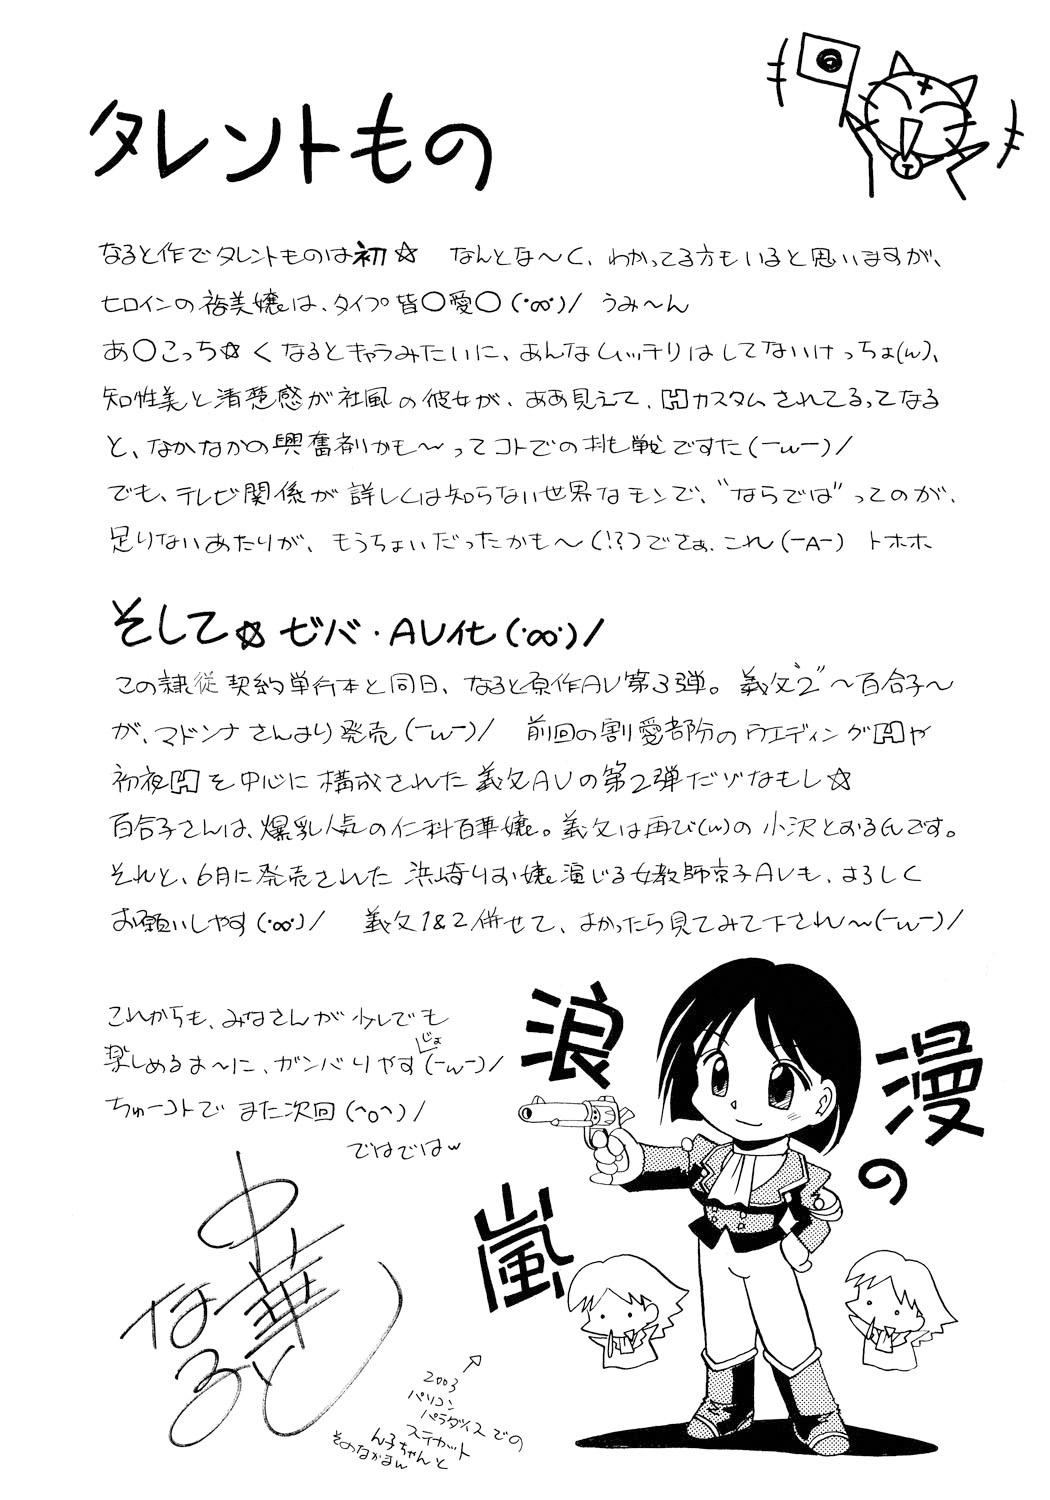 タレントもの
なると作でタレントものは初☆ なんとな〜く、わかってる方もいると思いますが、
ヒロインの裕美嬢は、タイプ皆○愛○(・∞・)/ うみ〜ん
あ○こっち☆くなるとキャラみたいに、あんなムッチリはしてないけっちょ(ん)、
知性美と清楚感が社風の彼女が、ああ見えて、Hカスタムされてるってなる
と、なかなかの興奮剤かも〜ってコトでの挑戦ですた(ーwー)/
でも、テレビ関係が詳しくは知らない世界なモンで、"ならでは"ってのが、
足りないあたりが、もうちょいだったかも〜(!?)でさぁ、これ(ーAー) トホホ
そして☆ビバ・AV化(・∞・)/
この隷従契約単行本と同日、なると原作AV第3弾。義父"2"〜百合子〜
が、マドンナさんより発売(ーwー)/ 前回の割愛部分のウエディングHや
初夜Hを中心に構成された義父AVの第2弾だゾなもし☆
百合子さんは、爆乳人気の仁科百華嬢。義父は再び(w)の小沢とおるくんです。
それと、6月に発売された浜崎りお嬢演じる女教師京子AVも、よろしく
お願いしやす(・∞・)/ 義父1&2併せて、よかったら見てみて下され〜(ーwー)/
これからも、みなさんが少しでも
楽しめるよ〜に、ガンバりやす(ーwー)/
じょ
ちゅーコトでまた次回(^o^)/
ではではw
浪漫の嵐
中華なると
2003
パソコン
パラダイスでの
ステカット
ん子ちゃんと
そのなかまw